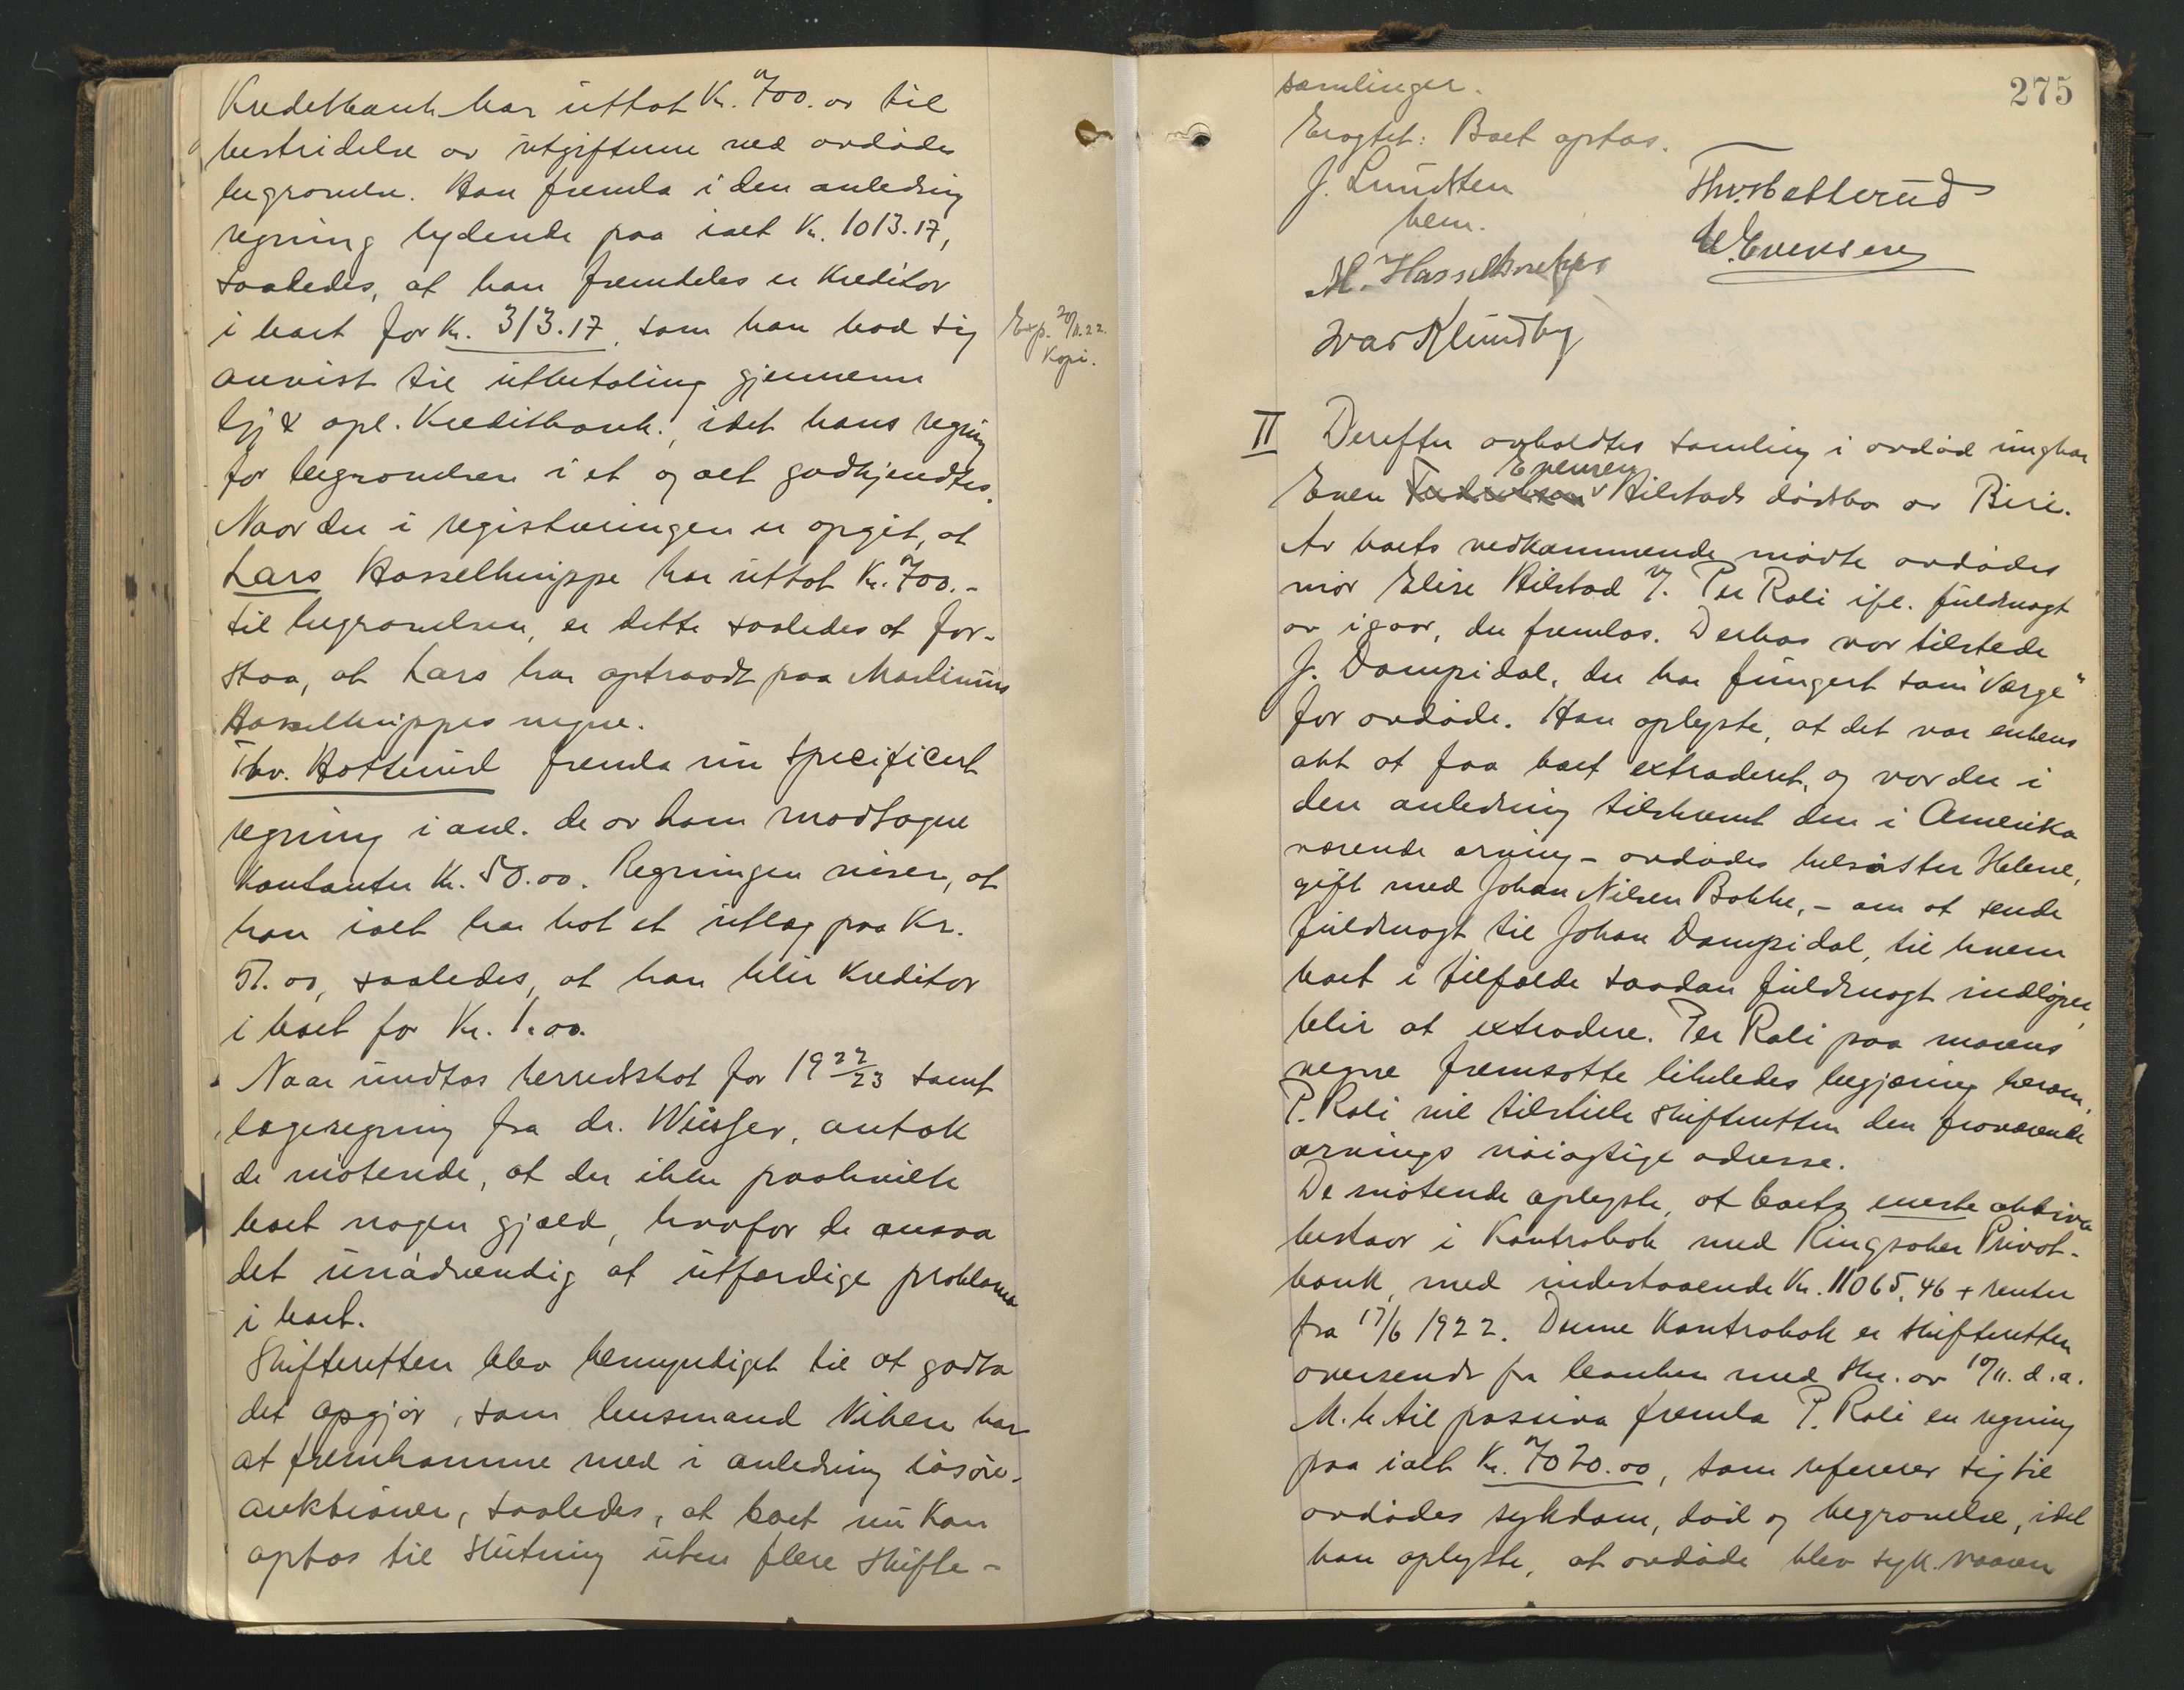 Kreditbank har uttat Kr. 700.00 til
bestridelse av utgifterne ved avdødes
begravelse. Han fremla i den anledning
regning lydende paa ialt Kr. 1013.17,
saaledes, at han fremdeles er kreditor
i boet for Kr. 313.17, som han bad sig
anvist til utbetaling gjennem
Gj & opl. Kreditbank, idet hans regning
for begravelsen i et og alt godkjendtes.
Naar der i registreringen er opgit, at
Lars Hasselknippe har uttat Kr. 700.-
til begravelsen, er dette saaledes at for-
staa, at Lars har optraadt paa Martinius
Hasselknippes vegne.
Thv. Hotterud fremla nu specificert
regning i anl. de av ham modtagne
Kontanter Kr. 50.00. Regningen viser, at
han ialt har hat et utlæg paa Kr.
51.00, saaledes, at han blir kreditor
i boet for Kr. 1.00.
Naar undtas herredskat for 1922/23 samt
lægeregning fra dr. antok
de møtende, at der ikke paahvilte
boet nogen gjæld, hvorfor de ansaa
det unødvendig at utfærdige proklama
i boet.
Skifteretten blev bemyndiget til at godta
det opgjør, som lensmand Viken har
at fremkomme med i anledning løsøre-
auktionen, saaledes, at boet nu kan
optas til slutning uten flere skifte-
Exp. 20/11.22.
Kopi.
275
samlinger.
Eragtet: Boet optas.
J. Lundsten
bem.
Thv. Hotterud
E. Evensen
M. Hasselknippe
Ivar Klundby
II Derefter avholdtes samling i avdød ungkar
Evensen
Even Hilstads dødsbo av Biri.
Av boets vedkommende møtte avdødes
mor Elise Hilstad v. Per Roli ifl. fuldmagt
av igaar, der fremlas. Derhos var tilstede
J. Dampidal, der har fungert som "Værge"
for avdøde. Han oplyste, at det var enkens
akt at faa boet extradert, og var der i
den anledning tilskrevet den i Amerika
værende arving - avdødes helsøster Helene,
gift med Johan Nilsen Bakke, - om at sende
fuldmagt til Johan Dampidal, til hvem
boet i tilfælde saadan fuldmagt indløper,
blir at extradere. Per Roli paa morens
vegne fremsatte likeledes begjæring herom.
P. Roli vil tilstille skifteretten den fraværende
arvings nøiagtige adresse.
De møtende oplyste, at boets eneste aktiva
bestaar i Kontrabok med Ringsaker Privat-
bank, med indestaaende Kr. 11065,46 + renter
fra 17/6 1922. Denne Kontrabok er skifteretten
oversendt fra banken med skr. av 10/11. d.a.
M.h.til passiva fremla P. Roli en regning
paa ialt Kr. 7020.00, som refererer sig til
avdødes sykdom, død og begravelse, idet
han oplyste, at avdøde blev syk vaaren